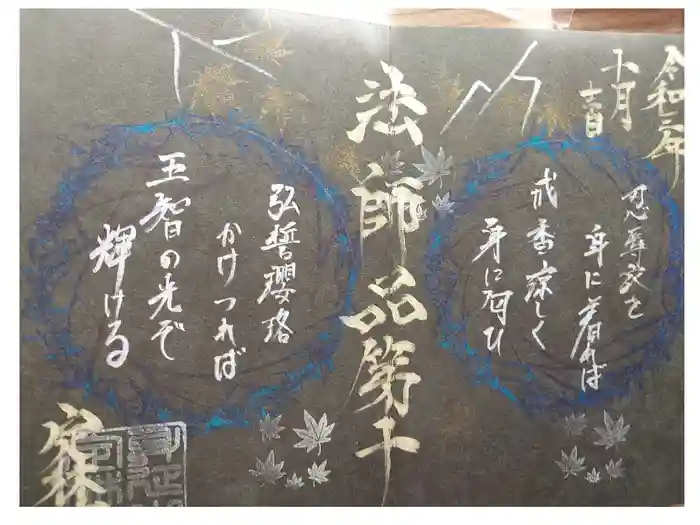 令和二年
十月
吉日
忍辱救を
身に着れば
戒香涼しく
身に匂ひ
法師品第十
弘誓瓔珞
かけつれば
五智の光ぞ
輝ける